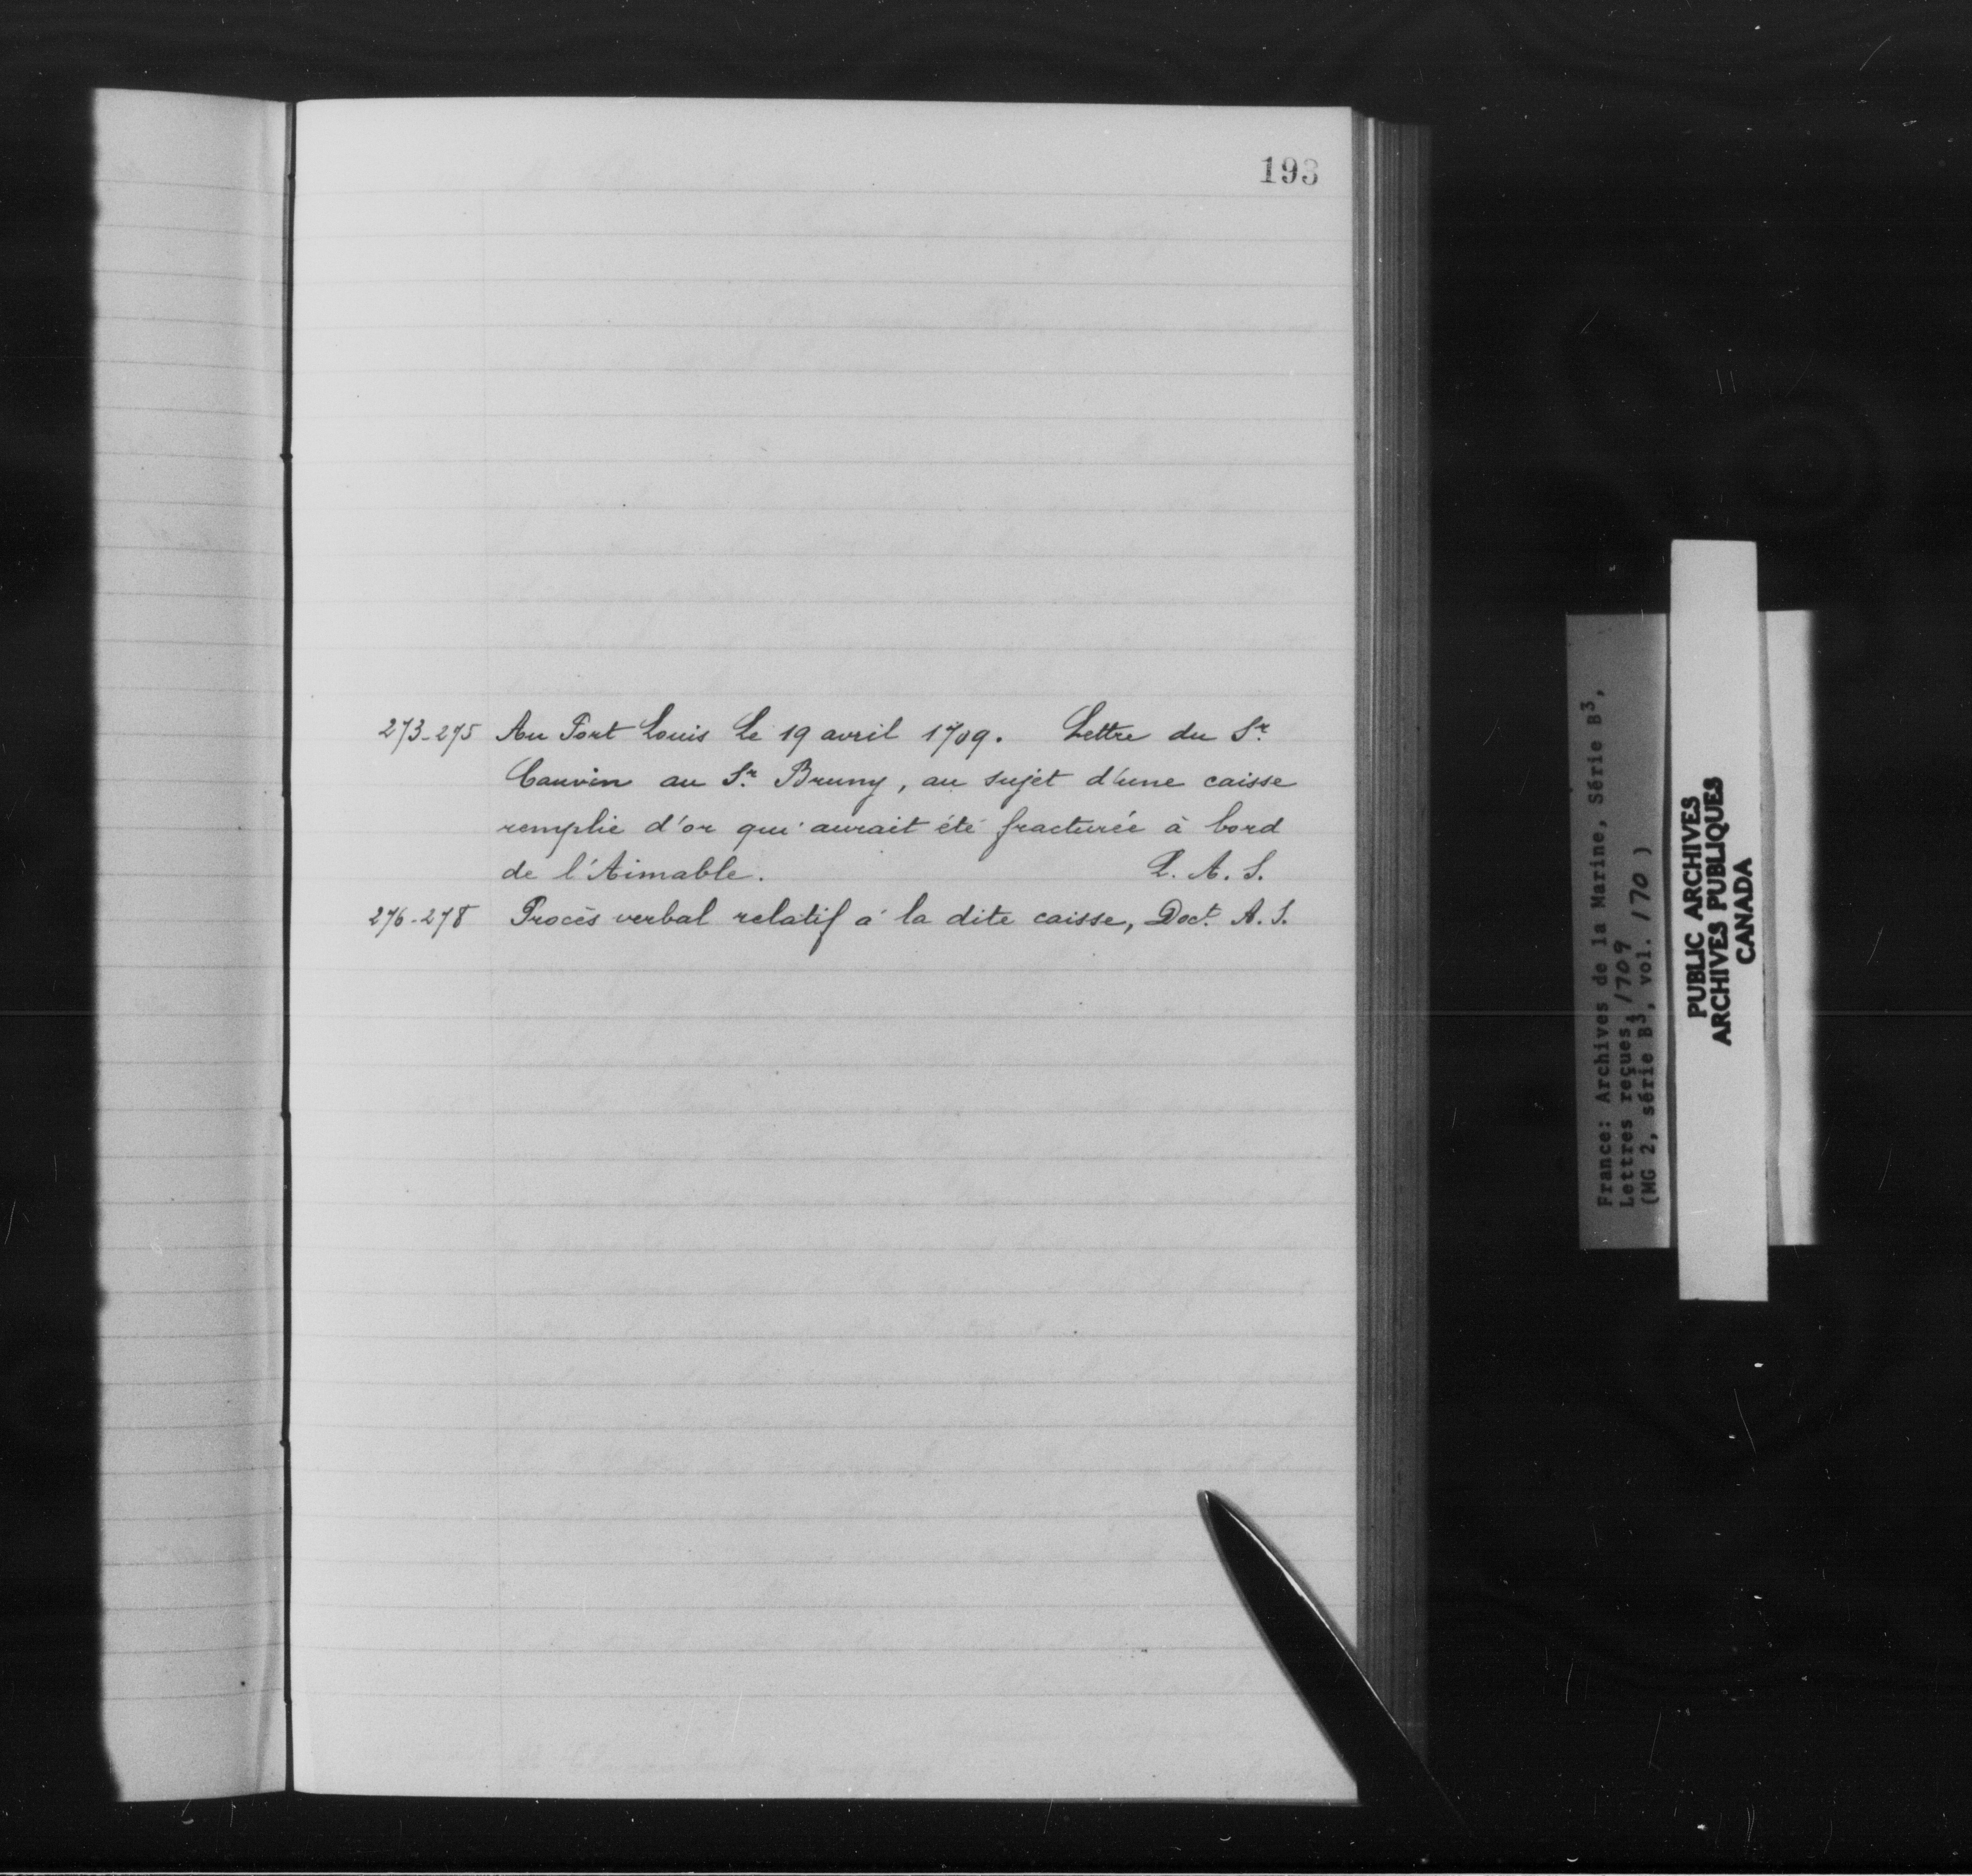 193
273-275 Au Port Louis Le 19 avril 1709. Lettre du Sr.
Cauvin au Sr. Bruny, au sujet d'une caisse
remplie d'or qui aurait été fracturée à bord
de l'Aimable. L. A. S.
276-278 Procès verbal relatif à la dite caisse, Doct. A. S.
France: Archives de la Marine, Série B3,
Lettres reçues, 1709
(MG 2, série B3, vol. 170)
PUBLIC ARCHIVES
ARCHIVES PUBLIQUES
CANADA